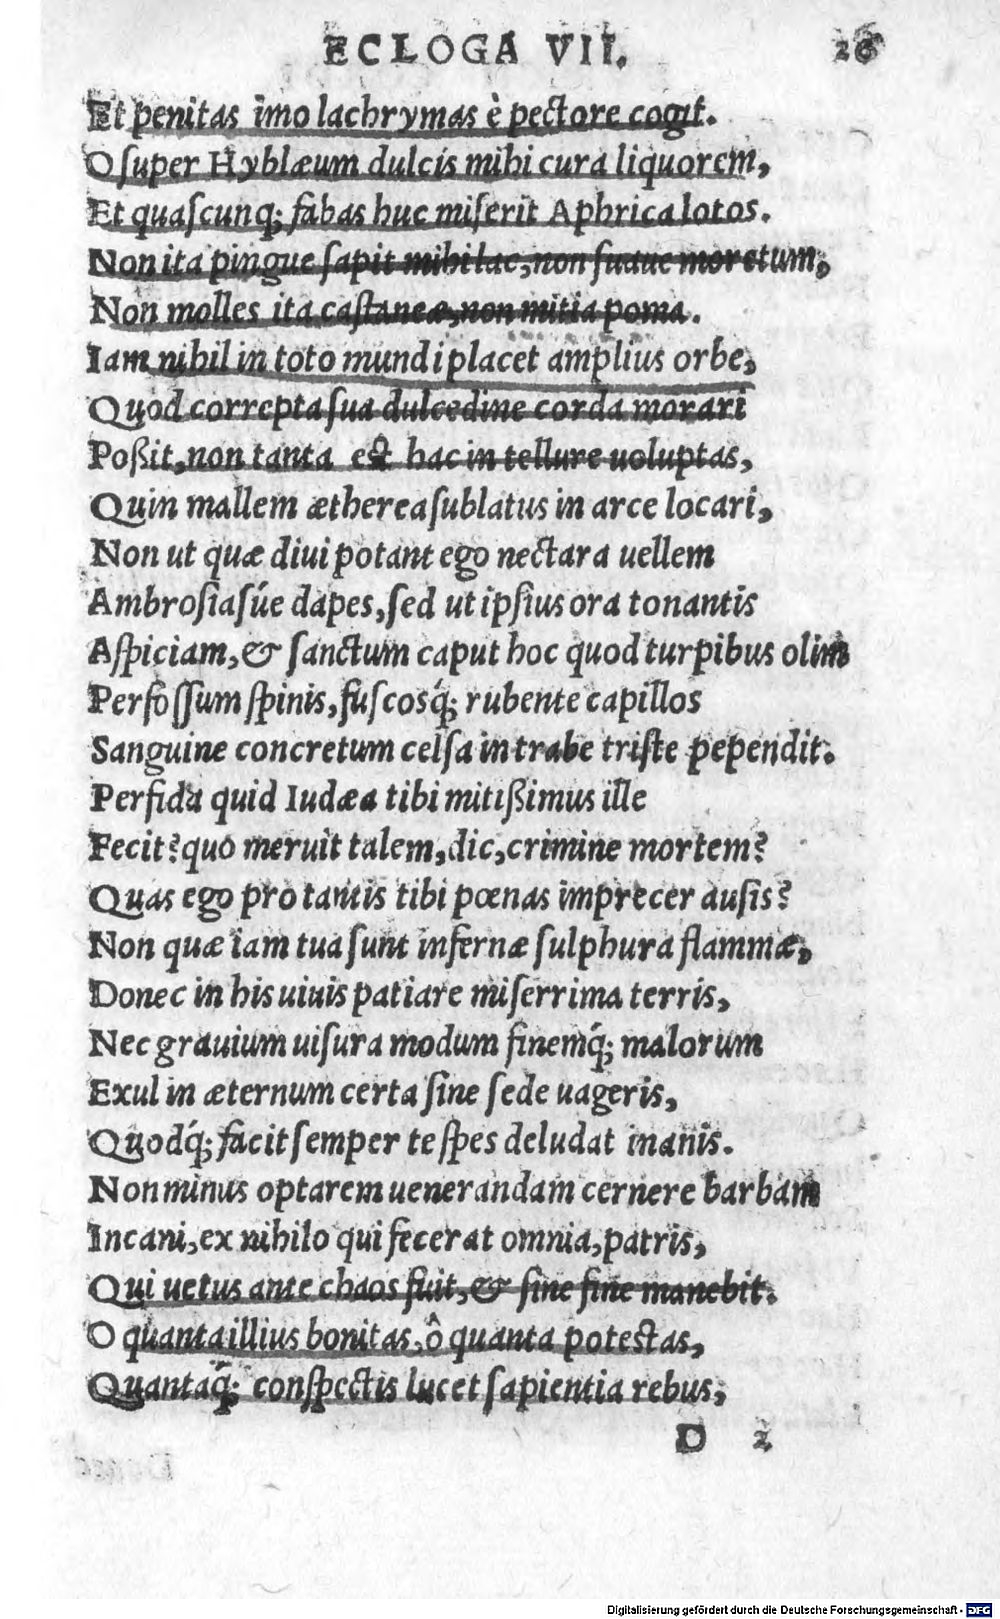 ECLOGA VII. 26
Et penitas imo lachrymas è pectore cogit.
O ſuper Hyblæum dulcis mihi cura liquorem,
Et quaſcunq; fabas huc miſerit Aphrica lotos.
Non ita pingue ſapit mihi lac, non ſuaue moretum,
Non molles ita caſtaneæ, non mitia poma.
Iam nihil in toto mundi placet amplius orbe,
Quod correpta ſua dulcedine corda morari
Poßit, non tanta eſt hac in tellure uoluptas,
Quin mallem ætherea ſublatus in arce locari,
Non ut quæ diui potant ego nectara uellem
Ambroſiaſúe dapes, ſed ut ipſius ora tonantis
Aſpiciam, & ſanctum caput hoc quod turpibus olim
Perfoſſum ſpinis, fuſcosq́; rubente capillos
Sanguine concretum celſa in trabe triſte pependit.
Perfida quid Iudæa tibi mitißimus ille
Fecit? quo meruit talem, dic, crimine mortem?
Quas ego pro tantis tibi pœnas imprecer auſis?
Non quæ iam tua ſunt infernæ ſulphura flammæ,
Donec in his uiuis patiare miſerrima terris,
Nec grauium uiſura modum finemq́; malorum
Exul in æternum certa ſine ſede uageris,
Quodq́; facit ſemper te ſpes deludat inanis.
Non minus optarem uenerandam cernere barbam
Incani, ex nihilo qui fecerat omnia, patris,
Qui uetus ante chaos fuit, & ſine fine manebit.
O quanta illius bonitas, ô quanta potestas,
Quantaq́; conſpectis lucet ſapientia rebus,
D 2
Digitalisierung gefördert durch die Deutsche Forschungsgemeinschaft - DFG